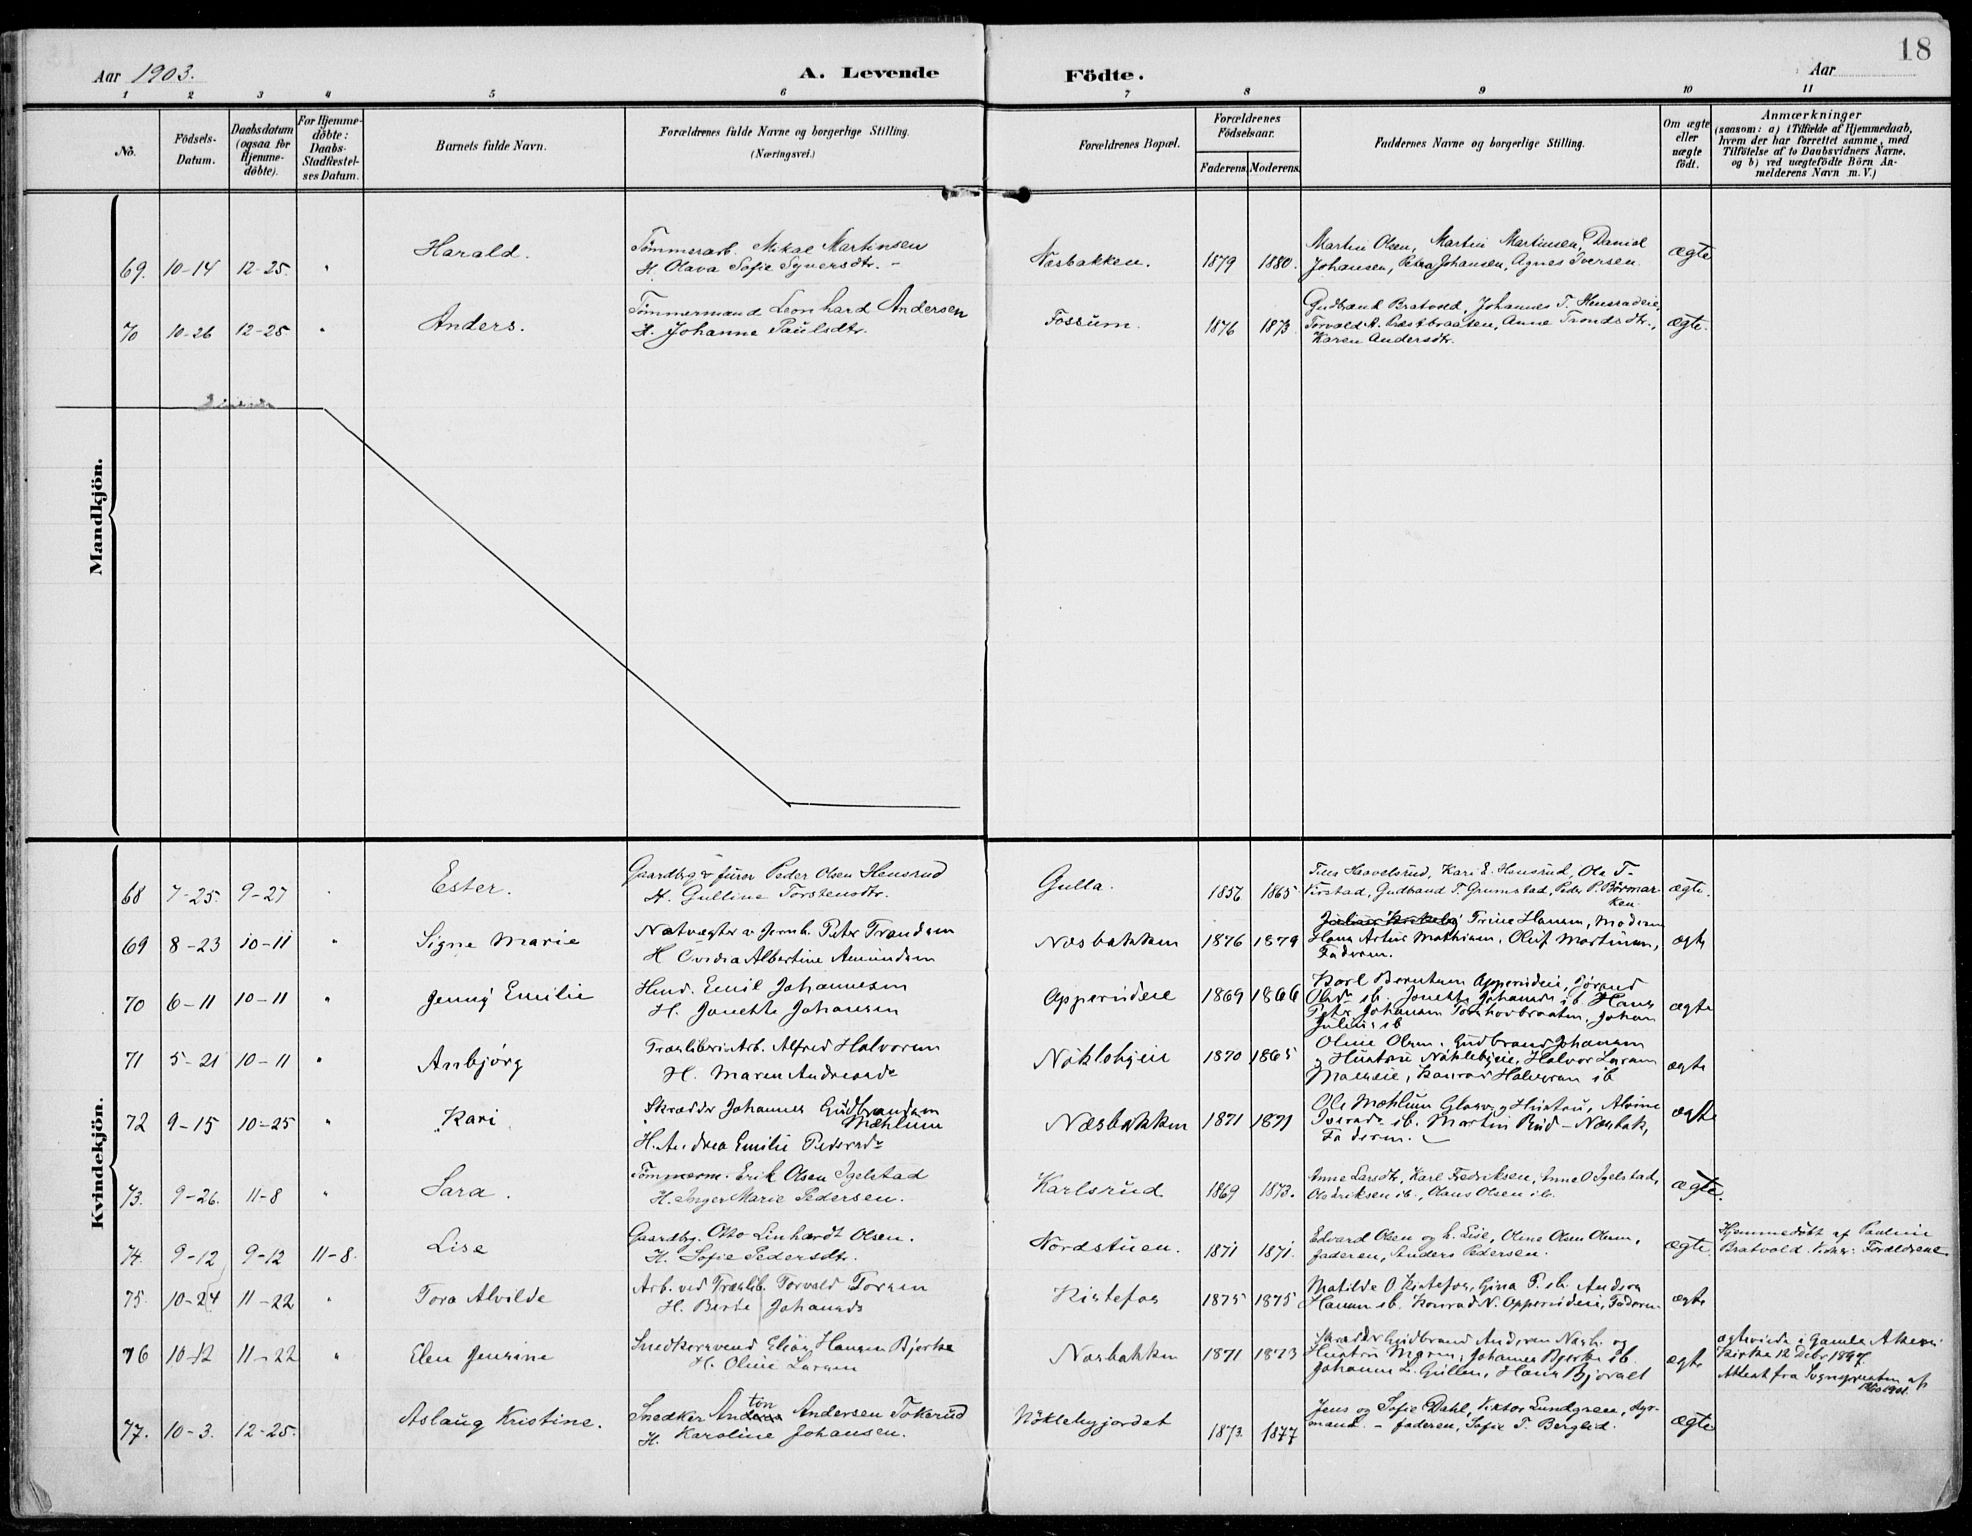 18
Aar 1903.
A. Levende
Födte.
Aar
1 2 3 4 5 6 7 8 9 10 11
No.
Födsels-
Datum.
Daabsdatum
(ogsaa for
Hjemme-
döbte).
For Hjemme-
döbte:
Daabs-
Stadfæstel-
ses Datum.
Barnets fulde Navn.
Forældrenes fulde Navne og borgerlige Stilling.
(Næringsvei.)
Forældrenes Bopæl.
Forældrenes
Födselsaar.
Faderens. Moderens.
Faddernes Navne og borgerlige Stilling.
Om ægte
eller
uægte
födt.
Anmærkninger
(saasom: a) i Tilfælde af Hjemmedaab,
hvem der har forrettet samme, med
Tilföielse af to Daabsvidners Navne,
og b) ved uægtefödte Börn An-
melderens Navn m. V.)
Mandkjön.
69. 10-14 12-25. " Harald.
Tömmerarb. Mikal Martinsen
H. Olava Sofie Syversdtr. -
Næsbakken. 1879 1880.
Martin Olsen, Martin Martinsen, Daniel
Johansen, Petra Johansen, Agnes Iversen.
ægte
70 10-26 12-25 " Anders.
Tömmermand Leonhard Andersen
H. Johanne Paulsdtr.
Fossum. 1876 1873.
Gudbrand Bratvold, Johannes T. Hensrudeie,
Torvald A. Præstbraaten, Anne Trondsdtr.,
Karen Andersdtr.
ægte.
Kvindekjön.
68 7-25. 9-27 Ester.
Gaardbrg. Peder Olsen Hensrud
H. Gulline Torstensdtr.
Gulla. 1856 1865
Kari E. Hensrud, Ola T.
Gudbrand T. Grumstad, Peder P. Börmar-
ken.
ægte.
69 8-23 10-11 " Signe Marie
Natvægter v. Jernb. Peter Trondsen
H. Ovidia Albertine Amundsen
Næsbakken 1876 1879
Trine Hansen, Moderen
Hans Artur Mathisen, Oluf Martinsen,
Faderen.
ægte
70 6-11 10-11 " Jenny Emilie
Husd. Emil Johannesen
H. Jonette Johansen
Opperudeie 1869 1866
Karl Berntsen Opperudeie, Jörand
Olsdr ib. Jonette Johansdr ib. Hans
Peter Johansen Torshovbraaten, Johan
Julius ib
ægte
71 5-21 10-11 " Anbjörg
Træsliberiarb. Alfred Halvorsen
H. Maren Andreasdr
Nöklebyeie 1870 1865
Oline Olsen, Gudbrand Johansen
og Hustru Nöklebyeie, Halvor Larsen
Moeneie, Konrad Halvorsen ib
ægte
72 9-15 10-25 " Kari
Skrædder Johannes Gudbrandsen
Mæhlum
H. Andrea Emilie Pedersdr
Næsbakken 1871 1871
Ole Mæhlum Glosv. og Hustru, Alvine
Iversdr ib. Martin Rud - Næsbak,
Faderen.
ægte
73. 9-26. 11-8 " Sara.
Tömmerm. Erik Olsen Igelstad
H. Inger Marie Pedersen.
Karlsrud 1869 1873.
Anne Larsdtr, Karl Fredriksen, Anne O Igelstad,
Ole Eriksen ib., Olaus Olsen ib.
ægte.
74. 9-12 9-12 11-8. Lise
Gaardbrg. Otto Linhardt Olsen.
H. Sofie Pedersdtr.
Nordstuen. 1871 1871.
Edvard Olsen og h. Lise, Oline Olsen Olsen,
faderen, Anders Pedersen.
ægte.
Hjemmedöbt af Pauline
Bratvold. Vidner: Forældrene
75. 10-24 11-22 " Tora Alvilde
Arb. ved Træslib. Torvald Torsen
H. Berte Johansdr
Kistefos 1875 1875
Matilde O. Kistefos, Gina P. ib. Anders
Hansen ib. Konrad N. Opperudeie, Faderen
ægte
76 10-12 11-22 " Elen Jensine
Snedkersvend Elias Hansen Bjerke
H. Oline Larsen
Næsbakken 1871 1873
Skrædder Gudbrand Andersen Næsb. og
Hustru Maren, Johannes Bjerke ib.
Johanne L. Gullen, Hans Bjoralt
ægte
ægteviede i Gamle Akers
Kirke 12 Debr 1897.
Attest fra Sognepresten af
77. 10-3. 12-25. Aslaug Kristine.
Snedker Anton Andersen Tokerud
H. Karoline Johansen.
Nöklebyjordet 1873. 1877
Jens og Sofie Dahl, Viktor Lundgreen, Dyr-
mand. - faderen, Sofie T. Berglid.
ægte